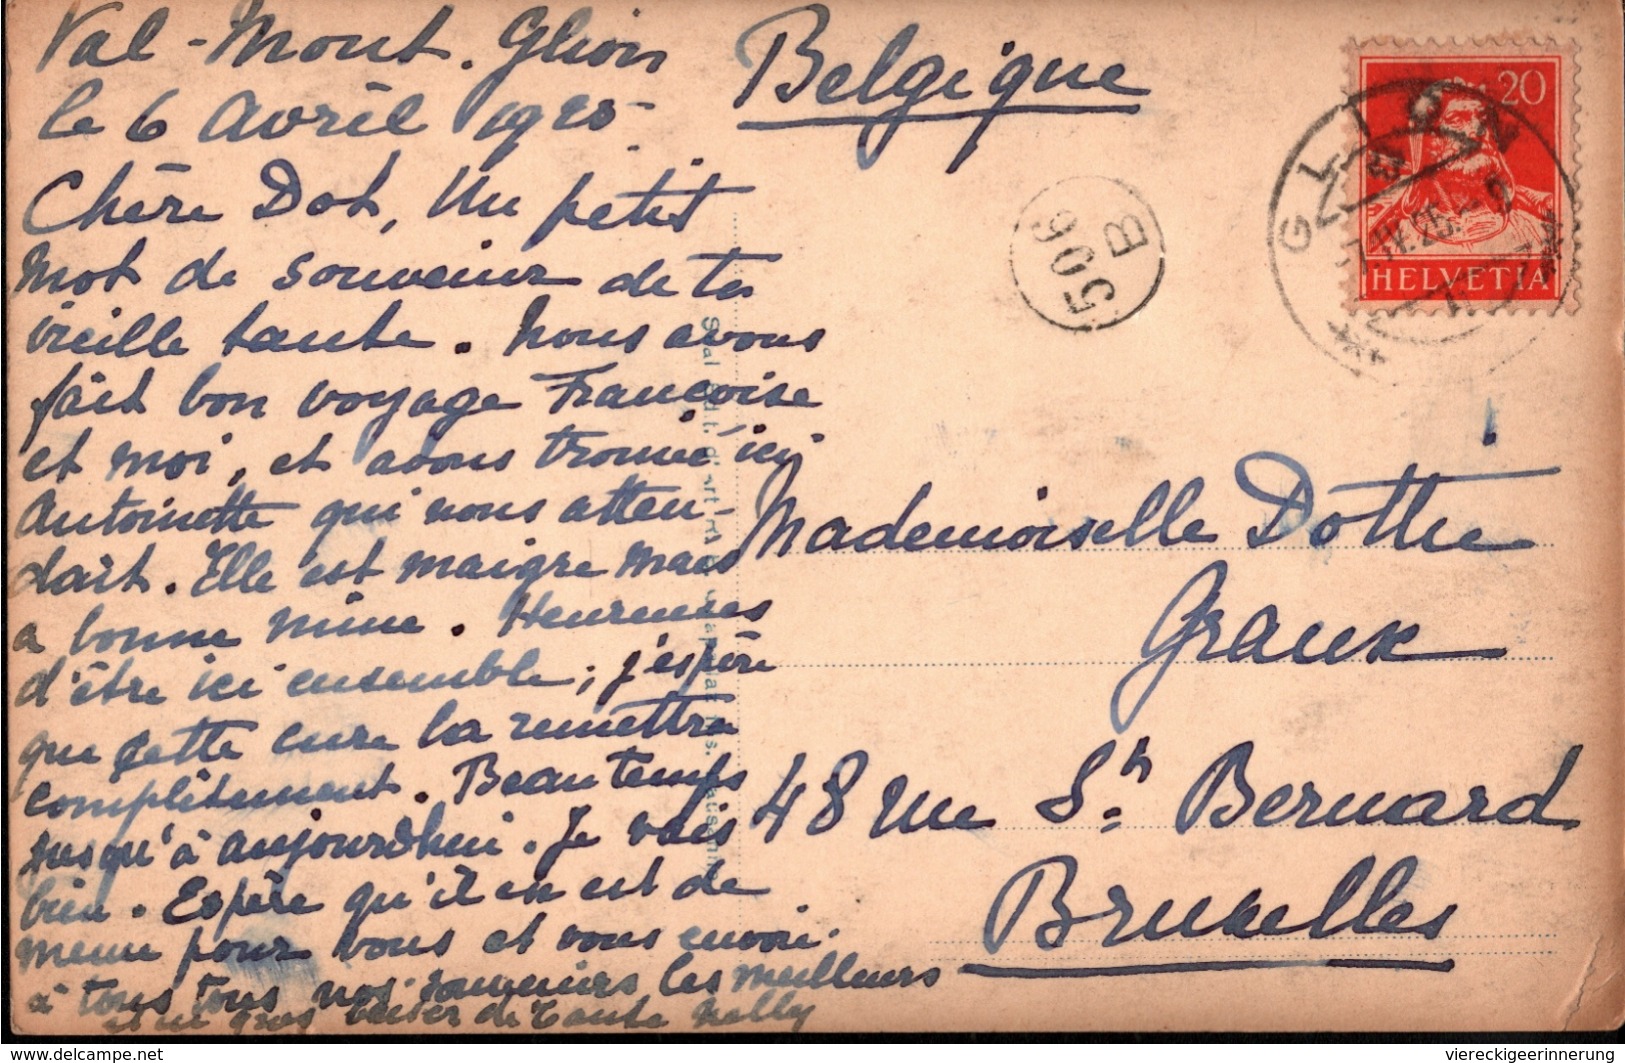 Val-Mont. Glion
le 6 Avril 1925
Chère Dot, Un petit
mot de souvenir de ta
vieille tante. Nous avons
fait bon voyage Françoise
et moi, et avons trouvé ici
Antoinette qui nous atten-
dait. Elle est maigre mais
a bonne mine. Heureuses
d'être ici ensemble; j'espère
que cette cure la remettra
complètement. Beau temps
jusqu'à aujourd'hui. Je vais
bien. Espère qu'il en est de
meme pour vous et vous envoie
à tous tous nos souvenirs les meilleurs
et un gros baiser de Tante Nelly
Belgique
Mademoiselle Dottie
Graux
48 rue St Bernard
Bruxelles
506
B
20
HELVETIA
GLION
delcampe.net
viereckigeerinnerung